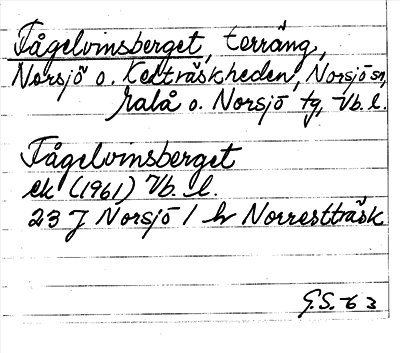 Fågelvinsberget, terräng,
Norsjö o. Kedträskheden, Norsjö sn,
Malå o. Norsjö tg, Vb. l.
Fågelvinsberget
ek (1961) Vb. l.
23 J Norsjö / hv Norrestträsk
G.S. 63